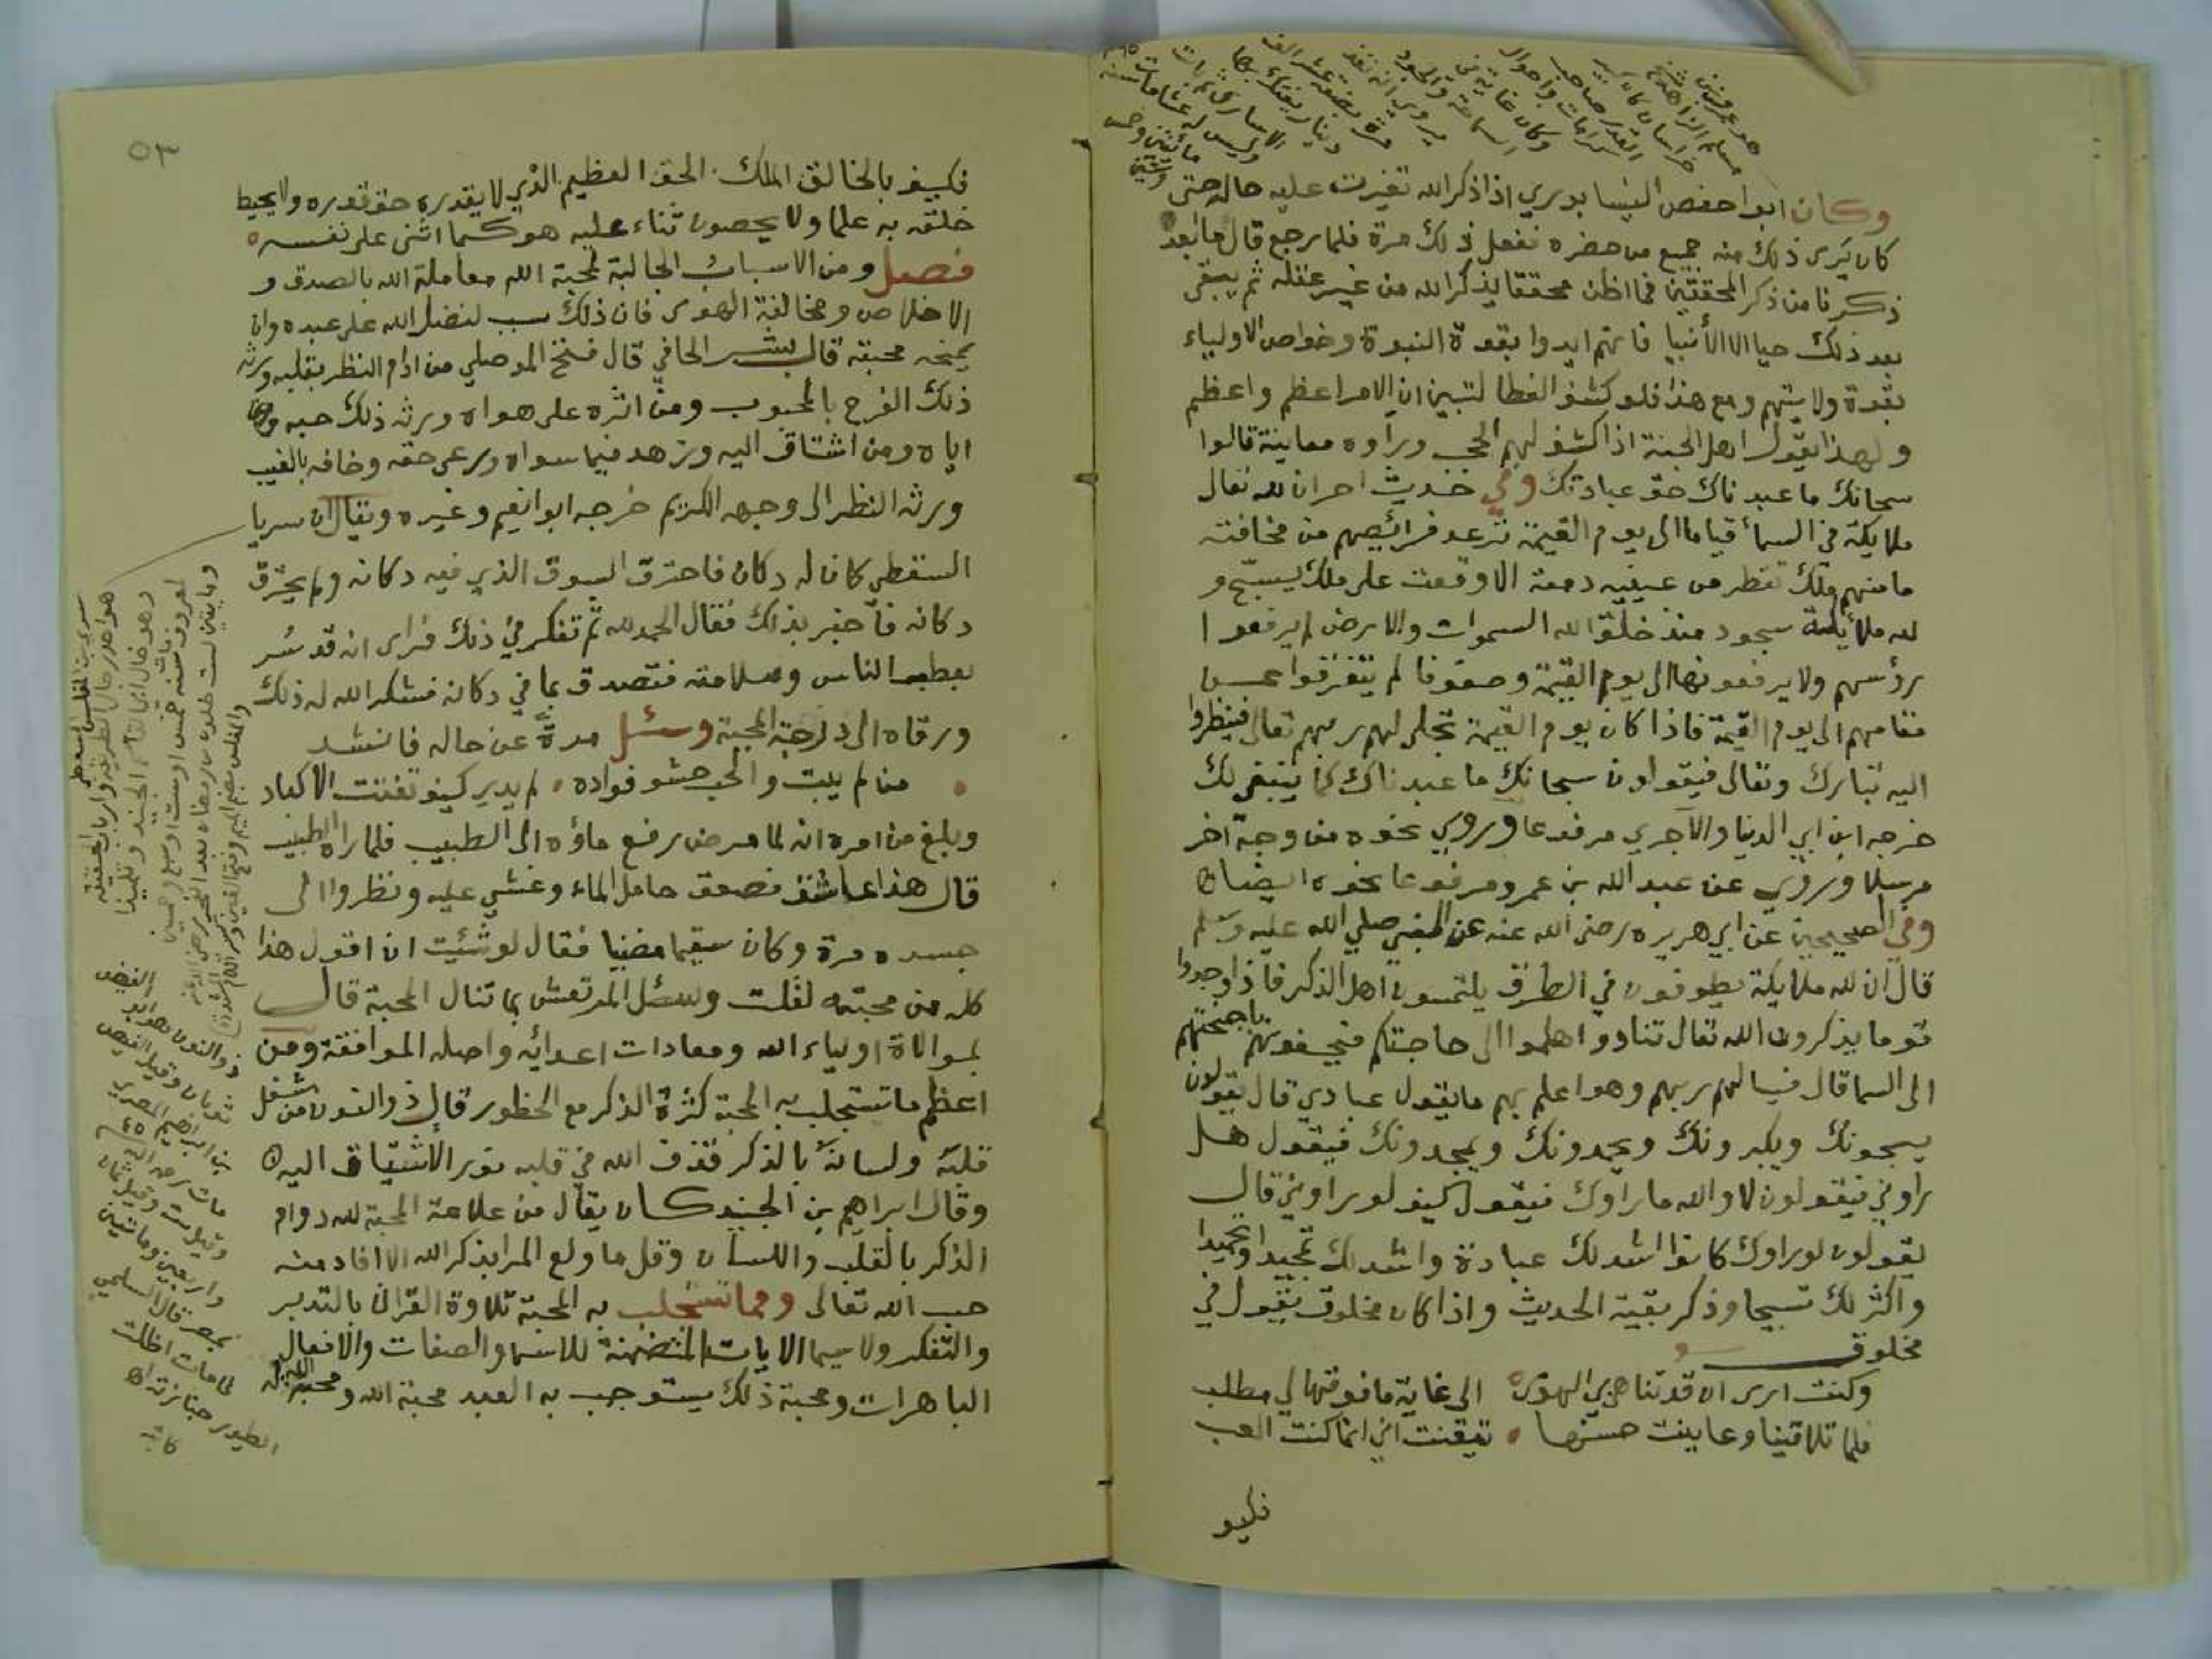 وكان ابوا حفص النيسابوري اذا ذكر الله تغيرت عليه حاله حتى
كان يَرى ذلك منه جميع من حضره ففعل ذلك مرة فلما رجع قال ما ابعد
ذكرنا من ذكر المحققين فما اظن محققا يذكر الله من غير غفله ثم يبقى
بعد ذلك حيا الا الأنبيا فانهم ايدوا بقوة النبوة وخواص الاولياء
بقوة ولايتهم ومع هذا فلو كشف الغطا لتبين ان الامر اعظم واعظم
ولهذا يقول اهل الجنة اذا كشف لهم الحجب ورأوه معاينة قالوا
سبحانك ما عبدناك حق عبادتك وفي حديث اخر ان لله تعالى
ملايكة في السماء قياما الى يوم القيمة ترعد فرائصهم من مخافته
ما منهم ملك تقطر من عينيه دمعة الا وقعت على ملك يسبّح و
لله ملائكة سجود منذ خلق الله السموات والارض لم يرفعوا
رؤسهم ولا يرفعونها الى يوم القيمة وصفوفا لم يتفرقوا عن
مقامهم الى يوم القيمة فاذا كان يوم القيمة تجلى لهم ربهم تعالى فينظروا
اليه تبارك وتعالى فيقولون سبحانك ما عبدناك كما ينبغي لك
خرجه ابن ابي الدنيا والآجري مرفوعا وروي نحوه من وجه آخر
مرسلا وروي عن عبد الله بن عمرو مرفوعا نحوه ايضا
وفي الصحيحين عن ابي هريره رضى الله عنه عن النبي صلي الله عليه وسلم
قال ان لله ملايكة يطوفون في الطرق يلتمسون اهل الذكر فاذا وجدوا
قوما يذكرون الله تعالى تنادوا هلموا الى حاجتكم فيحفونهم باجنحتهم
الى السما قال فيسالهم ربهم وهو اعلم بهم ما يقول عبادي قال يقولون
يسبحونك ويكبرونك ويحمدونك ويمجدونك فيقول هل
راوني فيقولون لا والله ما راوك فيقول كيف لو راوني قال
يقولون لو راوك كانوا اشد لك عبادة واشد لك تمجيدا وتحميدا
واكثر لك تسبيحا وذكر بقية الحديث واذا كان مخلوق يقول في
مخلوق
وكنت ارى ان قد تناهى بي الهوى الى غاية ما فوقها لي مطلب
فلما تلاقينا وعاينت حسنها تيقنت اني انما كنت العب
فكيف
٥٣
فكيف بالخالق الملك الحق العظيم الذي لا يقدره حق قدره ولا يحيط
خلقه به علما ولا يحصون ثناء عليه هو كما اثنى على نفسه
فصل ومن الاسباب الجالبة لمحبة الله معاملة الله بالصدق و
الاخلاص ومخالفة الهوى فان ذلك سبب لفضل الله على عبده وان
يمنحه محبته قال بشر الحافي قال فتح الموصلي من ادام النظر بقلبه ورثه
ذلك الفرح بالمحبوب ومن اثره على هواه ورثه ذلك حبه
اياه ومن اشتاق اليه وزهد فيما سواه ورعى حقه وخافه بالغيب
ورثه النظر الى وجهه الكريم خرجه ابوا نعيم وغيره ويقال ان سريا
السقطي كان له دكان فاحترق السوق الذي فيه دكانه ولم يحترق
دكانه فأخبر بذلك فقال الحمد لله ثم تفكر في ذلك فراى انه قد سُر
بعطب الناس وسلامته فتصدق بما في دكانه فشكر الله له ذلك
ورقاه الى درجة المحبة وسئل مرة عن حاله فانشد
من لم يبت والحب حشو فواده لم يدر كيف تفتت الاكباد
وبلغ من امره انه لما مرض رفع ماؤه الى الطبيب فلما راه الطبيب
قال هذا عاشق فصعق حامل الماء وغشي عليه ونظروا الى
جسده مرة وكان سقيما مضنيا فقال لو شئت ان اقول هذا
كله من محبته لقلت وسئل المرتعش بما تنال المحبة قال
بموالاة اولياء الله ومعادات اعدائه واصله الموافقة ومن
اعظم ما تستجلب به المحبة كثرة الذكر مع الحظور قال ذوالنون من شغل
قلبه ولسانه بالذكر قذف الله في قلبه نور الاشتياق اليه
وقال ابراهيم بن الجنيد كان يقال من علامة المحبة لله دوام
الذكر بالقلب واللسان وقل ما ولع المرا بذكر الله الا افاد منه
حب الله تعالى ومما تستجلب به المحبة تلاوة القرآن بالتدبر
والتفكر ولا سيما الايات المتضمنة للاسما والصفات والافعال
الباهرات ومحبة ذلك يستوجب به العبد محبة الله ومحبة الله له
ذوالنون هو ابو الفيض
ثوبان وقيل الفيض
بن ابراهيم المصري
مات رحمه الله
وقيل ست وقيل ثمان
واربعين ومائتين
بمصر قال السلمي
لما مات اظلت
الطيور جنازته اه